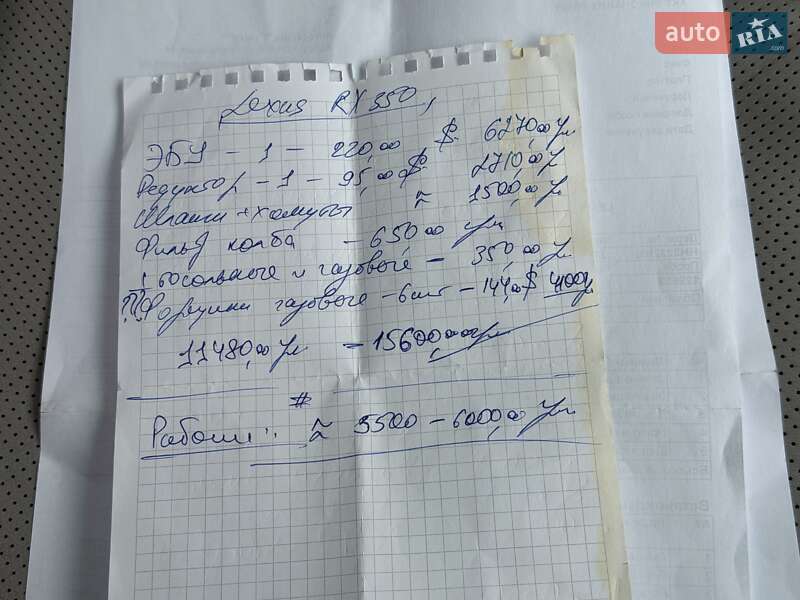 auto RIA.com
Lexus RX350,
ЭБУ – 1 – 220,00 $ 6270,00 Гр
Редуктор – 1 – 95,00 $ 2710,00 Гр
Шланги + хомуты ≈ 1500,00 Гр
Фильтр колба – 650,00 Гр
Тосольные и газовые – 350,00 Гр
??? Форсунки газовые – 6шт – 144,00 $ 4100 Гр
11480,00 Гр – 15600,00 Гр
#
Работы: ≈ 5500 – 6000,00 Гр